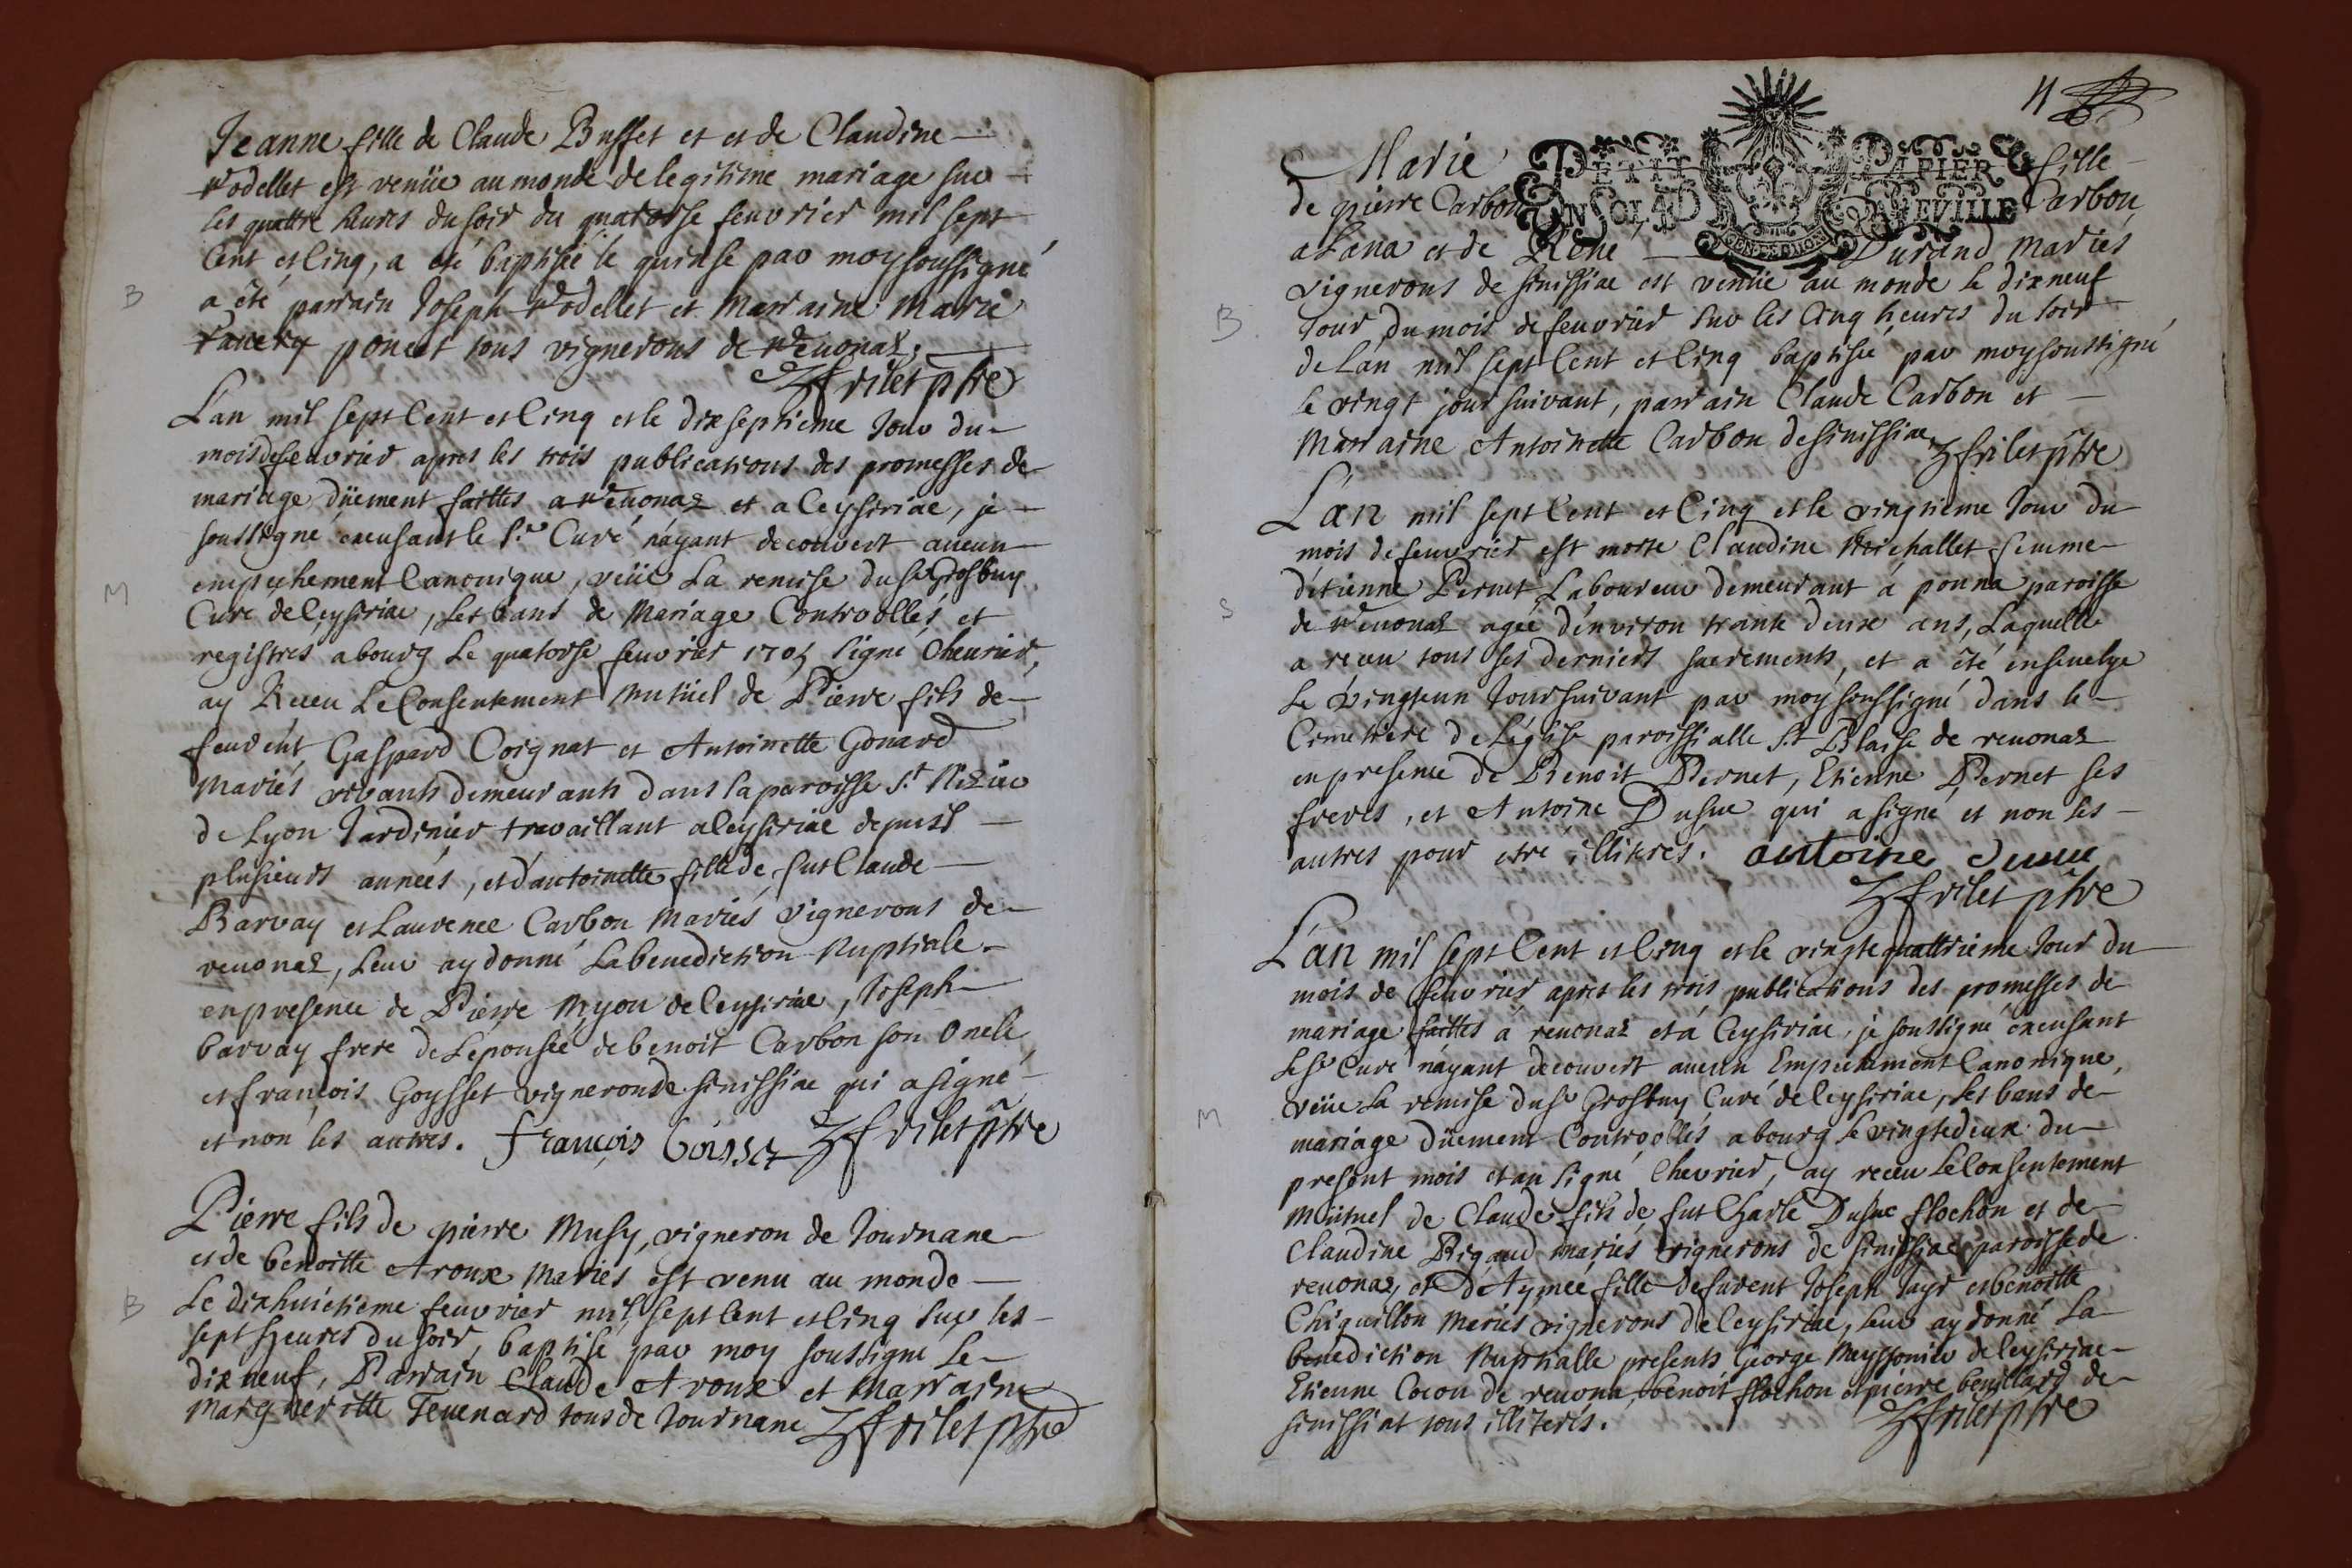 Jeanne fille de Claude Buffet et et de Claudine
Rodellet est venüe au monde de legitime mariage sur
les quattre heures du soir du quatorse feuvrier mil sept
Cent et Cinq, a été baptisée le quinse par moy soussigné
B
a été parrain Joseph Rodellet et Marraine Marie
poncet tous vignerons de Reuonaz.
frilet ptre
L'an mil sept Cent et Cinq et le dix septieme Jour du
mois de feuvrier apres les trois publications des promesses de
mariage düement faittes a Reuonaz et a Ceyssiriac, je
soussigné excusant le Sr Curé n'ayant decouvert aucun
empechement Canonique, veüe la remise du Sr Grosbuy
M
Curé de Ceysiriac, les bans de Mariage Controollés et
registrés a bourg le quatorse feuvrier 1705 signé Cheurier,
ay Receu le Consentement Mutüel de Pierre fils de
feurent Gaspard Coignat et Antoinette Gonard
Mariés vivants demeurants dans la paroisse St Nizier
de Lyon Jardinier travaillant a leysiriac depuis
plusieurs années, et d'antoinette fille de fut Claude
Barvay et Laurence Carbon Mariés vignerons de
reuonaz, leur ay donné la benediction Nuptiale
en presence de Pierre Myon de Ceysiriac, Joseph
barvay frere de l'epousée de benoit Carbon son Oncle
et françois Goysset vigneron de sinissiac qui a signé
et non les autres. françois Goisset frilet ptre
Pierre fils de pierre Musy, vigneron de Journane
et de benoitte Aroux Mariés est venu au monde
B
Le dixhuictieme feuvrier mil sept Cent et Cinq sur les
sept heures du soir, baptisé par moy soussigné le
dix neuf, Parrain Claude Aroux et Marraine
Margueritte Teuenard tous de Journane frilet ptre
4
PETIT PAPIER
UN SOL 4 D LA FEUILLE
GEN. DE DIJON
Marie fille
de pierre Carbon Carbon
a Lana et de René Durand Mariés
vignerons de sinissiac est venüe au monde le dixneuf
B.
Jour du mois de feuvrier sur les Cinq heures du soir
de L'an mil sept Cent et Cinq baptisée par moy soussigné
le vingt jour suivant, parrain Claude Carbon et
Marraine Antoinette Carbon de sinissiac frilet ptre
L'an mil sept Cent et Cinq et le vingtieme Jour du
mois de feuvrier est morte Claudine Michallet femme
d'etienne Pernet Laboureur demeurant à ponna paroisse
S
de Reuonaz agée d'environ trante deux ans, Laquelle
a receu tous ses derniers sacrements, et a été enseuelye
le vingteun Jour suivant par moy soussigné dans le
Cimetiere de L'église paroissialle St Blaise de reuonaz
en presence de Benoit Pernet, Etienne Pernet ses
freres, et Antoine Dusuc qui a signé et non les
autres pour etre illiterés. antoine dusuc
frilet ptre
L'an mil sept Cent et Cinq et le vingtequattrieme Jour du
mois de feuvrier apres les trois publications des promesses de
mariage faittes à reuonaz et à Ceysiriac, je soussigné excusant
le Sr Curé n'ayant decouvert aucun Empechement Canonique,
veüe la remise du Sr Grosbuy Curé de Ceysiriac, les bans de
M
mariage düement Controollés a bourg le vingtedeux du
present mois et an signé Chevrier, ay receu le Consentement
Mütuel de Claude fils de fut Charle Dusuc flochon et de
Claudine Rigaud mariés vignerons de sinissiac paroisse de
reuonaz, et d'Aymée fille de furent Joseph Jayr et benoitte
Chiquillon Meriés vignerons de Ceysiriac, leur ay donné la
benediction Nuptialle presents George Meyssonier de leysiriac
Etienne Cocon de reuona, benoit flochon et pierre benillard de
sinissiat tous illiterés. frilet ptre